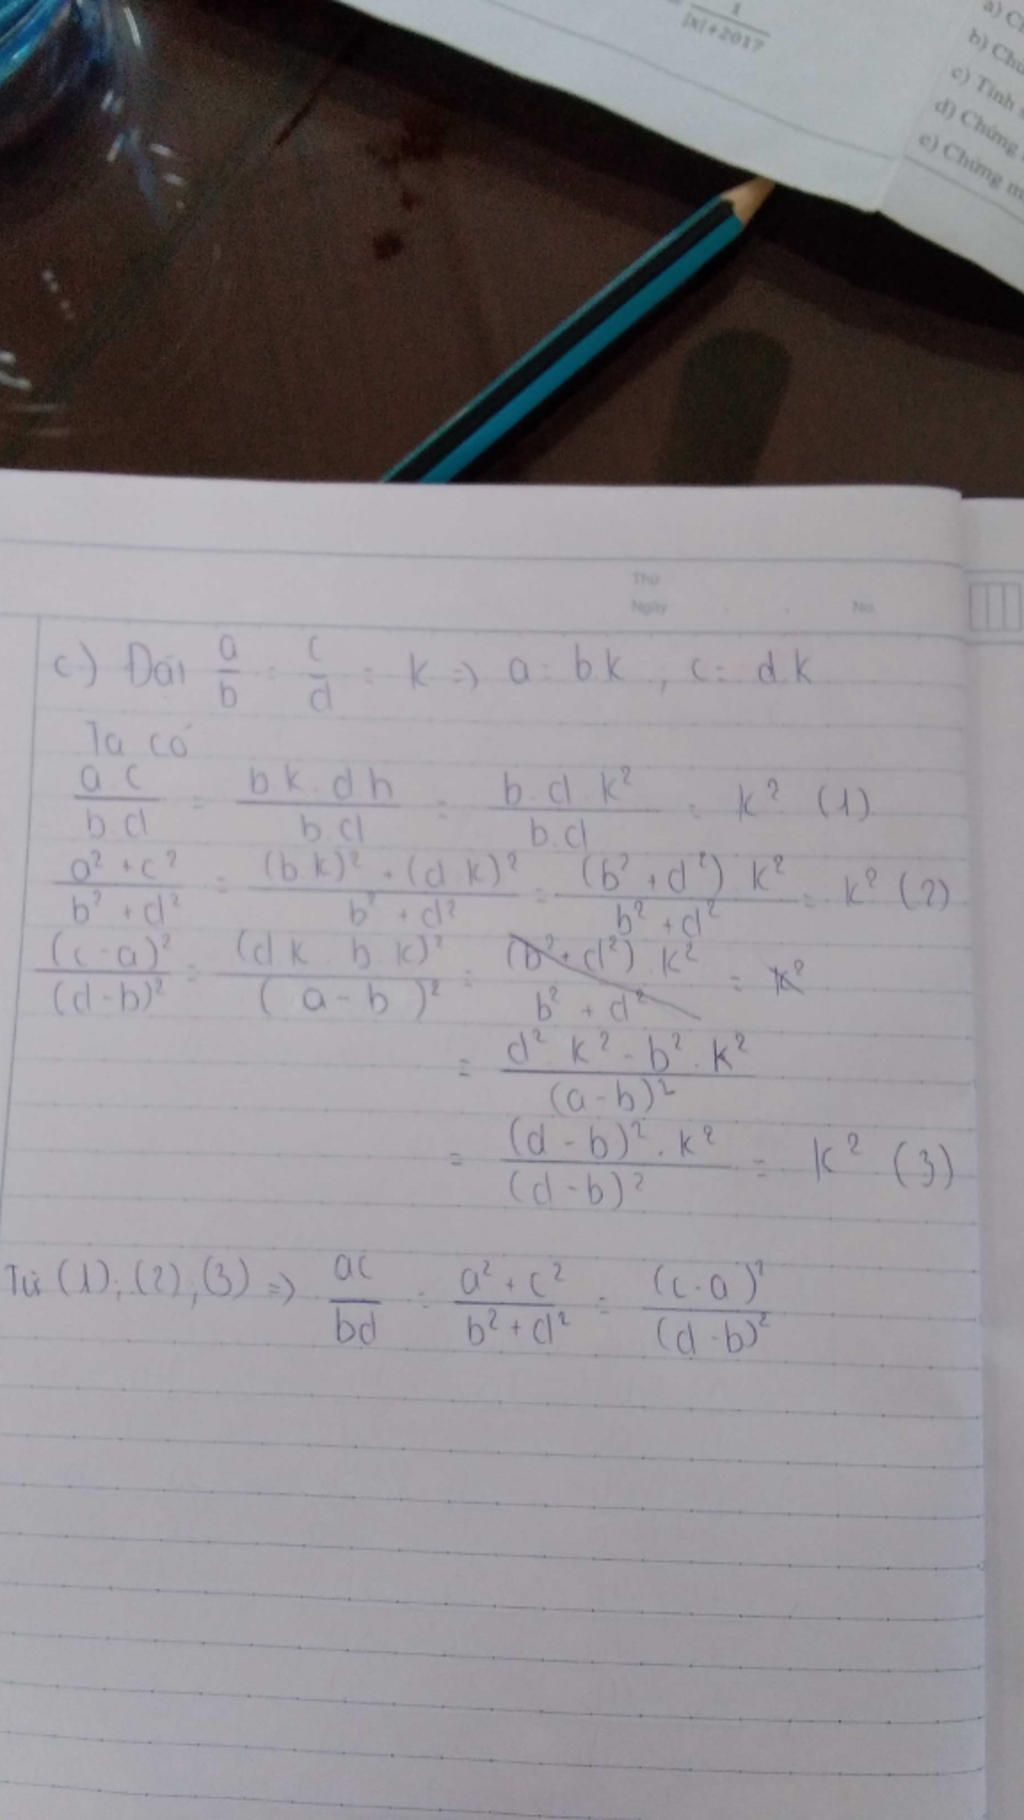 1
|x|+2017
a) C
b) Chu
c) Tính
d) Chứng
e) Chứng m
Thứ
Ngày No.
c) Đặt a/b = c/d = k => a = b.k, c = d.k
Ta có
a.c/b.d = bk.dk/b.d = b.d.k²/b.d = k² (1)
a²+c²/b²+d² = (bk)²+(d.k)²/b²+d² = (b²+d²).k²/b²+d² = k² (2)
(c-a)²/(d-b)² = (dk-bk)²/(a-b)² = (b²+d²).k²/b²+d² = k²
= d².k²-b².k²/(a-b)²
= (d-b)².k²/(d-b)² = k² (3)
Từ (1);(2);(3) => ac/bd = a²+c²/b²+d² = (c-a)²/(d-b)²